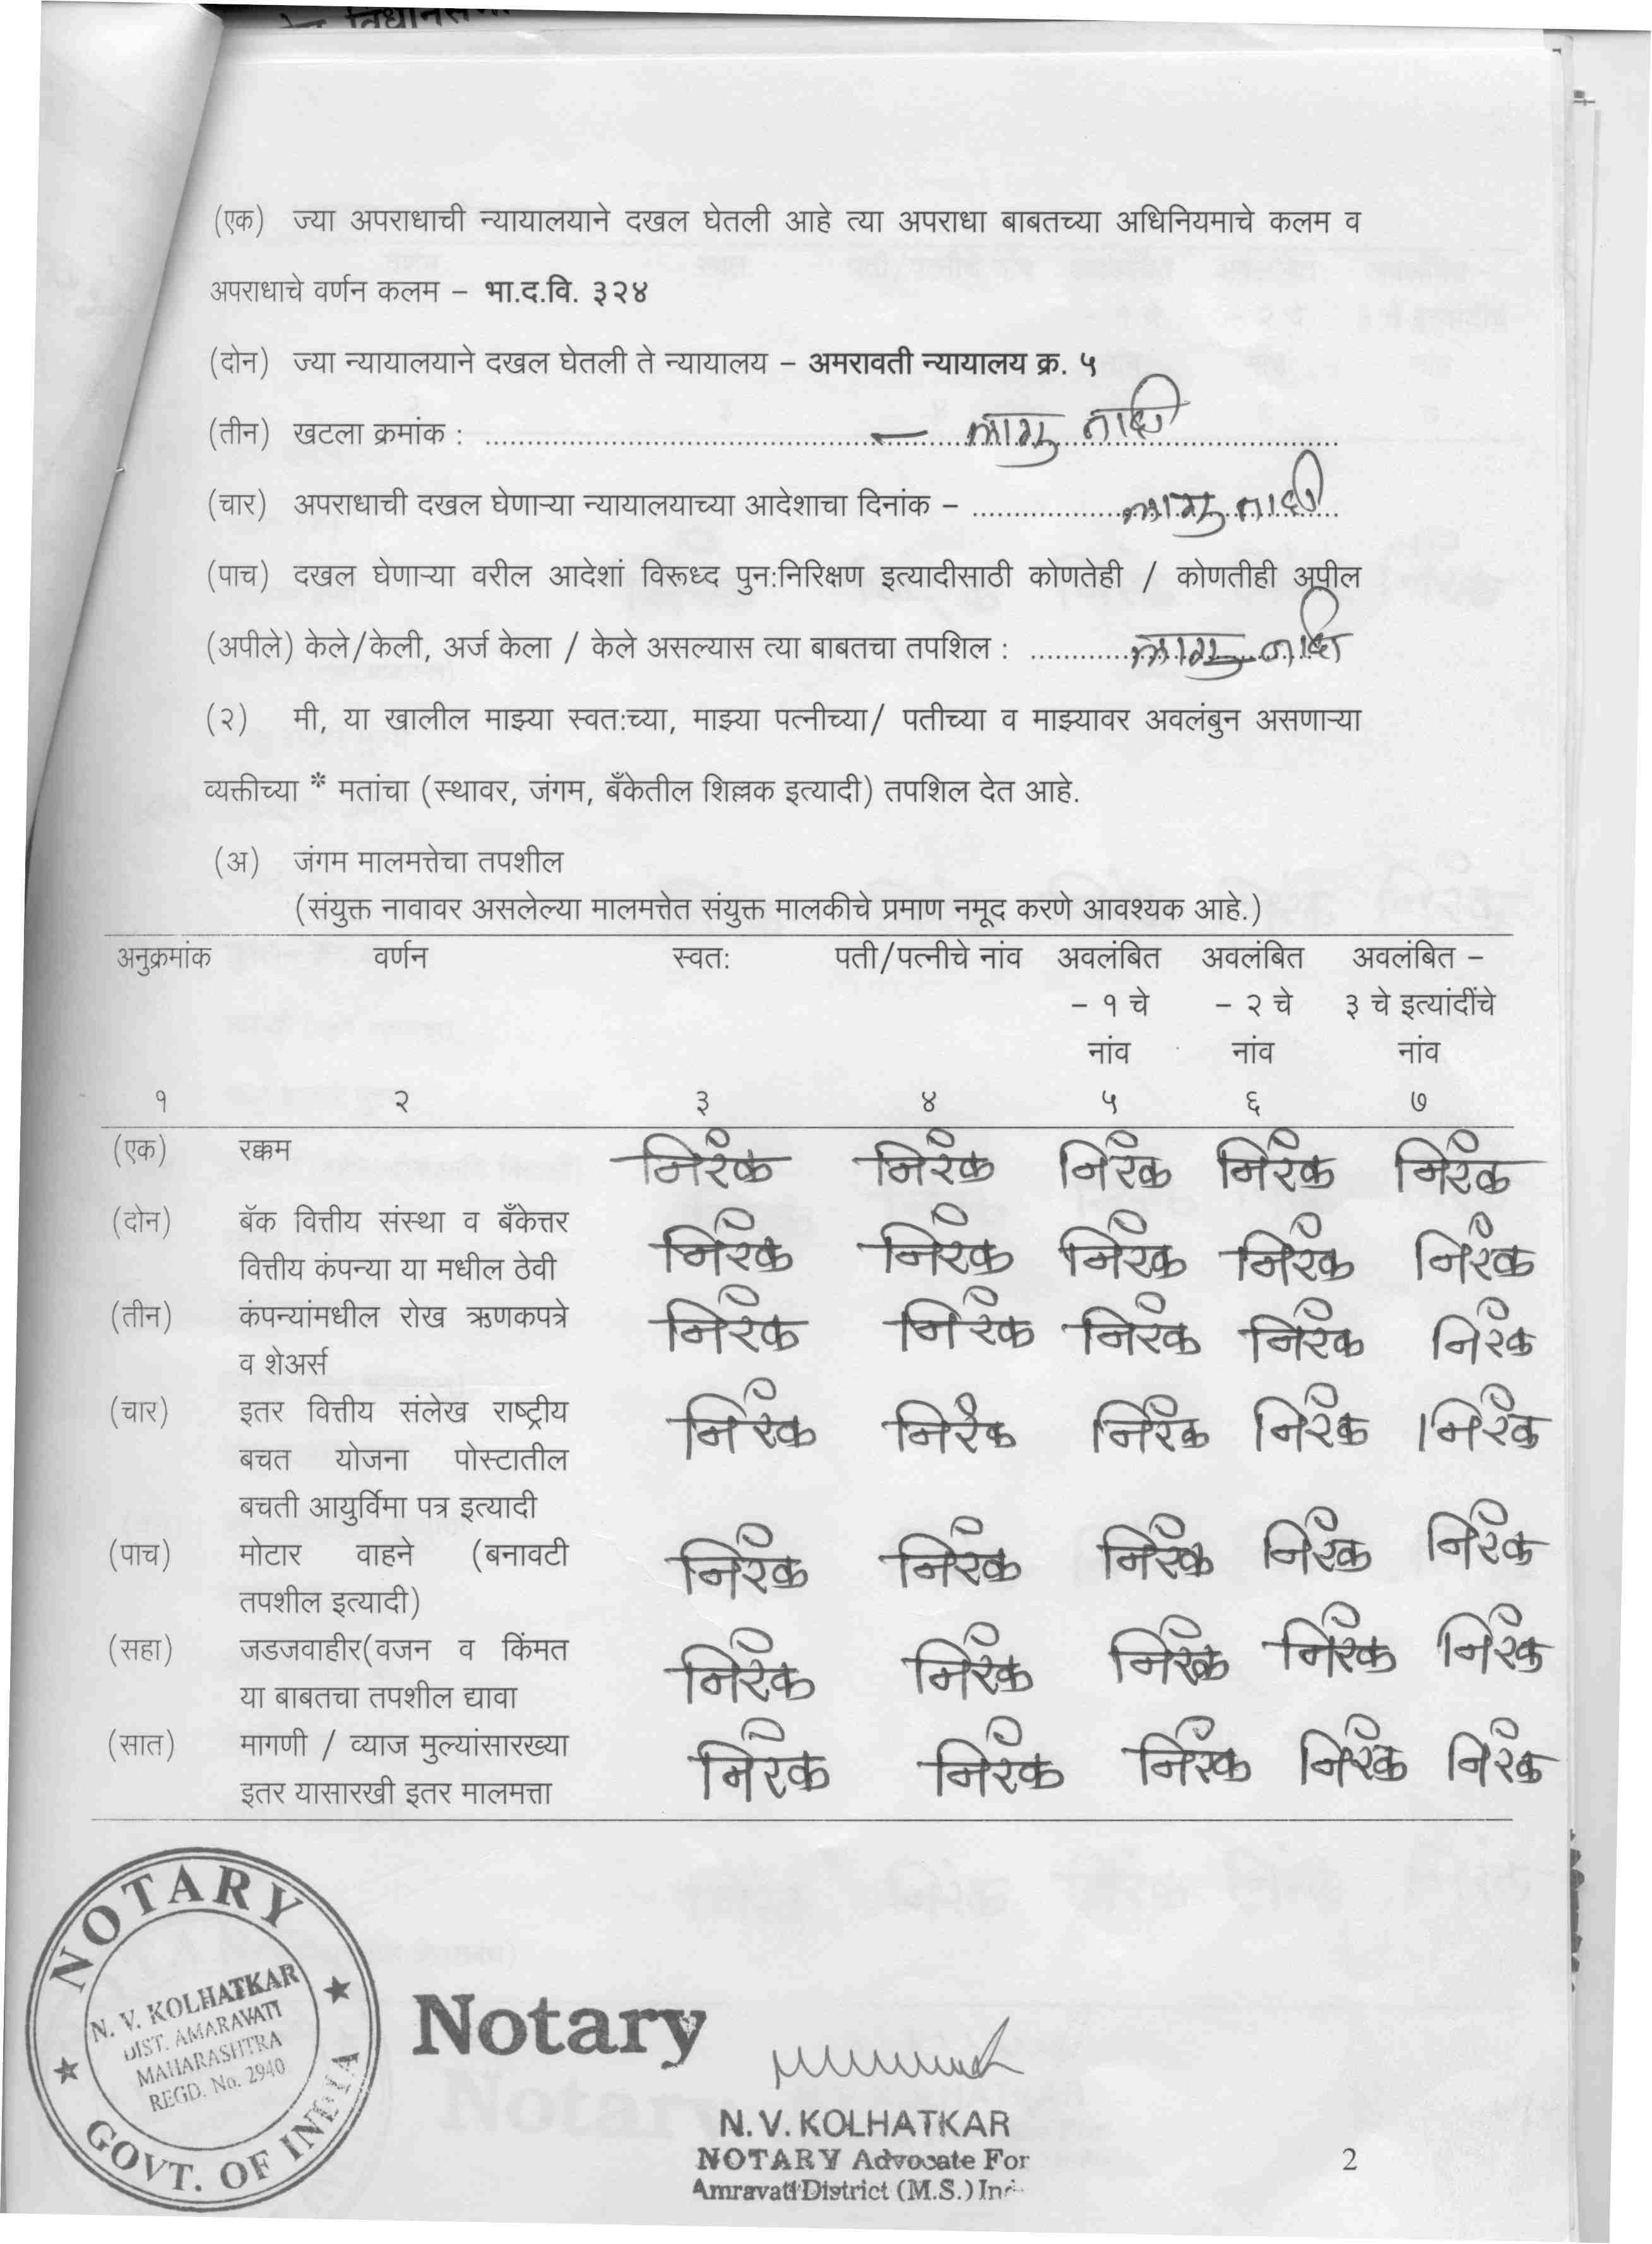 (एक) ज्या अपराधाची न्यायालयाने दखल घेतली आहे त्या अपराधा बाबतच्या अधिनियमाचे कलम व
अपराधाचे वर्णन कलम – भा.द.वि. ३२४
(दोन) ज्या न्यायालयाने दखल घेतली ते न्यायालय – अमरावती न्यायालय क्र. ५
(तीन) खटला क्रमांक : – लागु नाही
(चार) अपराधाची दखल घेणाऱ्या न्यायालयाच्या आदेशाचा दिनांक – लागु नाही
(पाच) दखल घेणाऱ्या वरील आदेशां विरूध्द पुन:निरिक्षण इत्यादीसाठी कोणतेही / कोणतीही अपील
(अपीले) केले/केली, अर्ज केला / केले असल्यास त्या बाबतचा तपशिल : लागु नाही
(२) मी, या खालील माझ्या स्वत:च्या, माझ्या पत्नीच्या/ पतीच्या व माझ्यावर अवलंबुन असणाऱ्या
व्यक्तीच्या * मतांचा (स्थावर, जंगम, बँकेतील शिल्लक इत्यादी) तपशिल देत आहे.
(अ) जंगम मालमत्तेचा तपशील
(संयुक्त नावावर असलेल्या मालमत्तेत संयुक्त मालकीचे प्रमाण नमूद करणे आवश्यक आहे.)
अनुक्रमांक वर्णन स्वत: पती/पत्नीचे नांव अवलंबित अवलंबित अवलंबित –
– १ चे – २ चे ३ चे इत्यांदींचे
नांव नांव नांव
१ २ ३ ४ ५ ६ ७
(एक) रक्कम निरंक निरंक निरंक निरंक निरंक
(दोन) बॅक वित्तीय संस्था व बँकेत्तर निरंक निरंक निरंक निरंक निरंक
वित्तीय कंपन्या या मधील ठेवी
(तीन) कंपन्यांमधील रोख ऋणकपत्रे निरंक निरंक निरंक निरंक निरंक
व शेअर्स
(चार) इतर वित्तीय संलेख राष्ट्रीय निरंक निरंक निरंक निरंक निरंक
बचत योजना पोस्टातील
बचती आयुर्विमा पत्र इत्यादी
(पाच) मोटार वाहने (बनावटी निरंक निरंक निरंक निरंक निरंक
तपशील इत्यादी)
(सहा) जडजवाहीर(वजन व किंमत निरंक निरंक निरंक निरंक निरंक
या बाबतचा तपशील द्यावा
(सात) मागणी / व्याज मुल्यांसारख्या निरंक निरंक निरंक निरंक निरंक
इतर यासारखी इतर मालमत्ता
NOTARY
N. V. KOLHATKAR
DIST. AMARAVATI
MAHARASHTRA
REGD. No. 2940
GOVT. OF INDIA
Notary
N. V. KOLHATKAR
NOTARY Advocate For
Amravati District (M.S.)
2